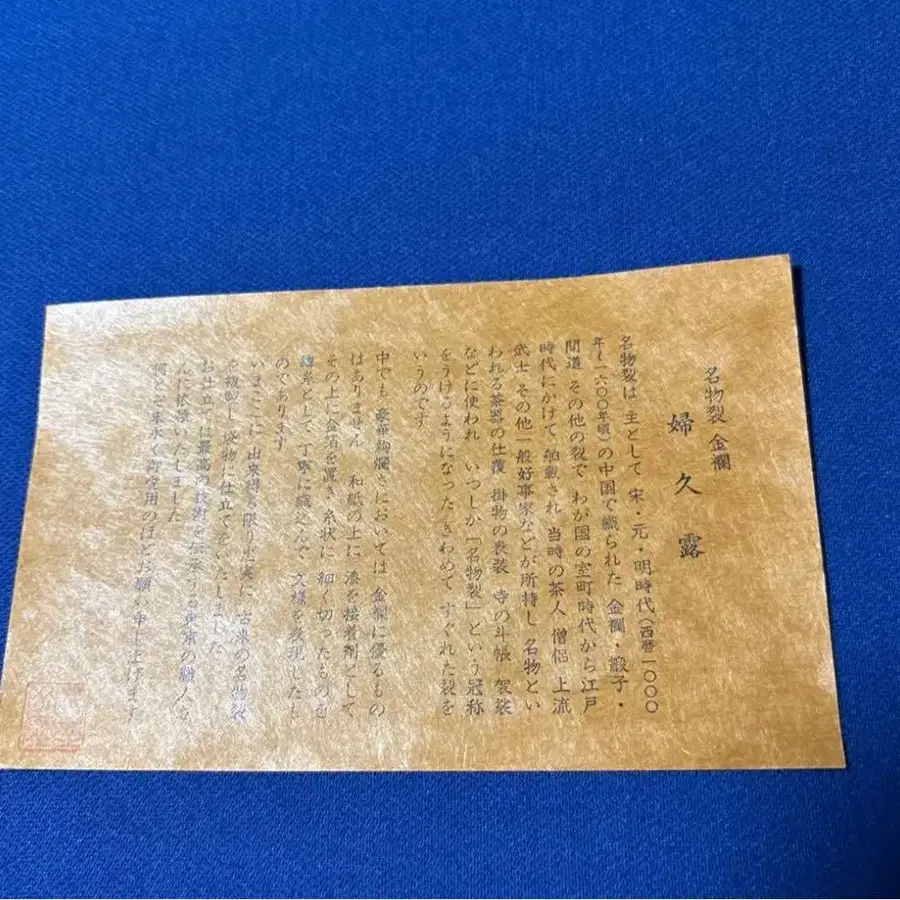 名物裂 金襴
婦久露
名物裂は 主として 宋・元・明時代(西暦一〇〇〇
年~一六〇〇年頃)の中国で織られた 金襴・緞子・
間道 その他の裂で わが国の室町時代から江戸
時代にかけて 舶載され 当時の茶人 僧侶 上流
武士 その他一般好事家などが所持し 名物とい
われる茶器の仕覆 掛物の表装 寺の斗帳 袈裟
などに使われ いつしか「名物裂」という冠称
をうけるようになった きわめて すぐれた裂を
いうのです
中でも 豪華絢爛さにおいては 金襴に優るもの
はありません 和紙の上に 漆を接着剤として
その上に金箔を置き 糸状に 細く切ったものを
緯糸として 丁寧に織込んで 文様を表現したも
のであります
いまここに 出来得る限り忠実に 古来の名物裂
を複製し 袋物に仕立てをいたしました
お仕立ては最高の技術を伝承する東京の職人さ
んに依頼いたしました
何とぞ末永く御愛用のほどお願い申し上げます